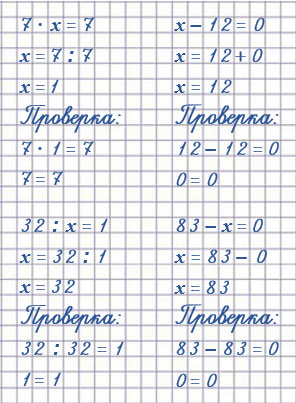 7 · x = 7
x = 7 : 7
x = 1
Проверка:
7 · 1 = 7
7 = 7
x − 12 = 0
x = 12 + 0
x = 12
Проверка:
12 − 12 = 0
0 = 0
32 : x = 1
x = 32 : 1
x = 32
Проверка:
32 : 32 = 1
1 = 1
83 − x = 0
x = 83 − 0
x = 83
Проверка:
83 − 83 = 0
0 = 0